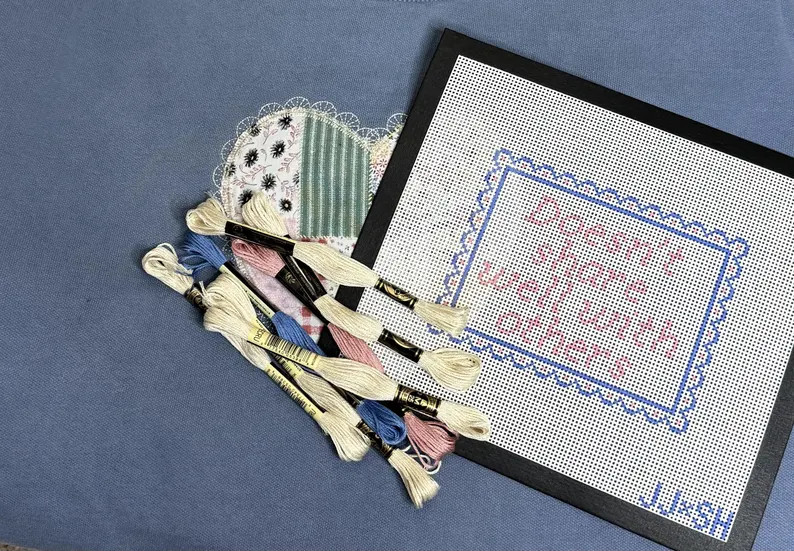 Doesn't
share
well with
others
JJxSH